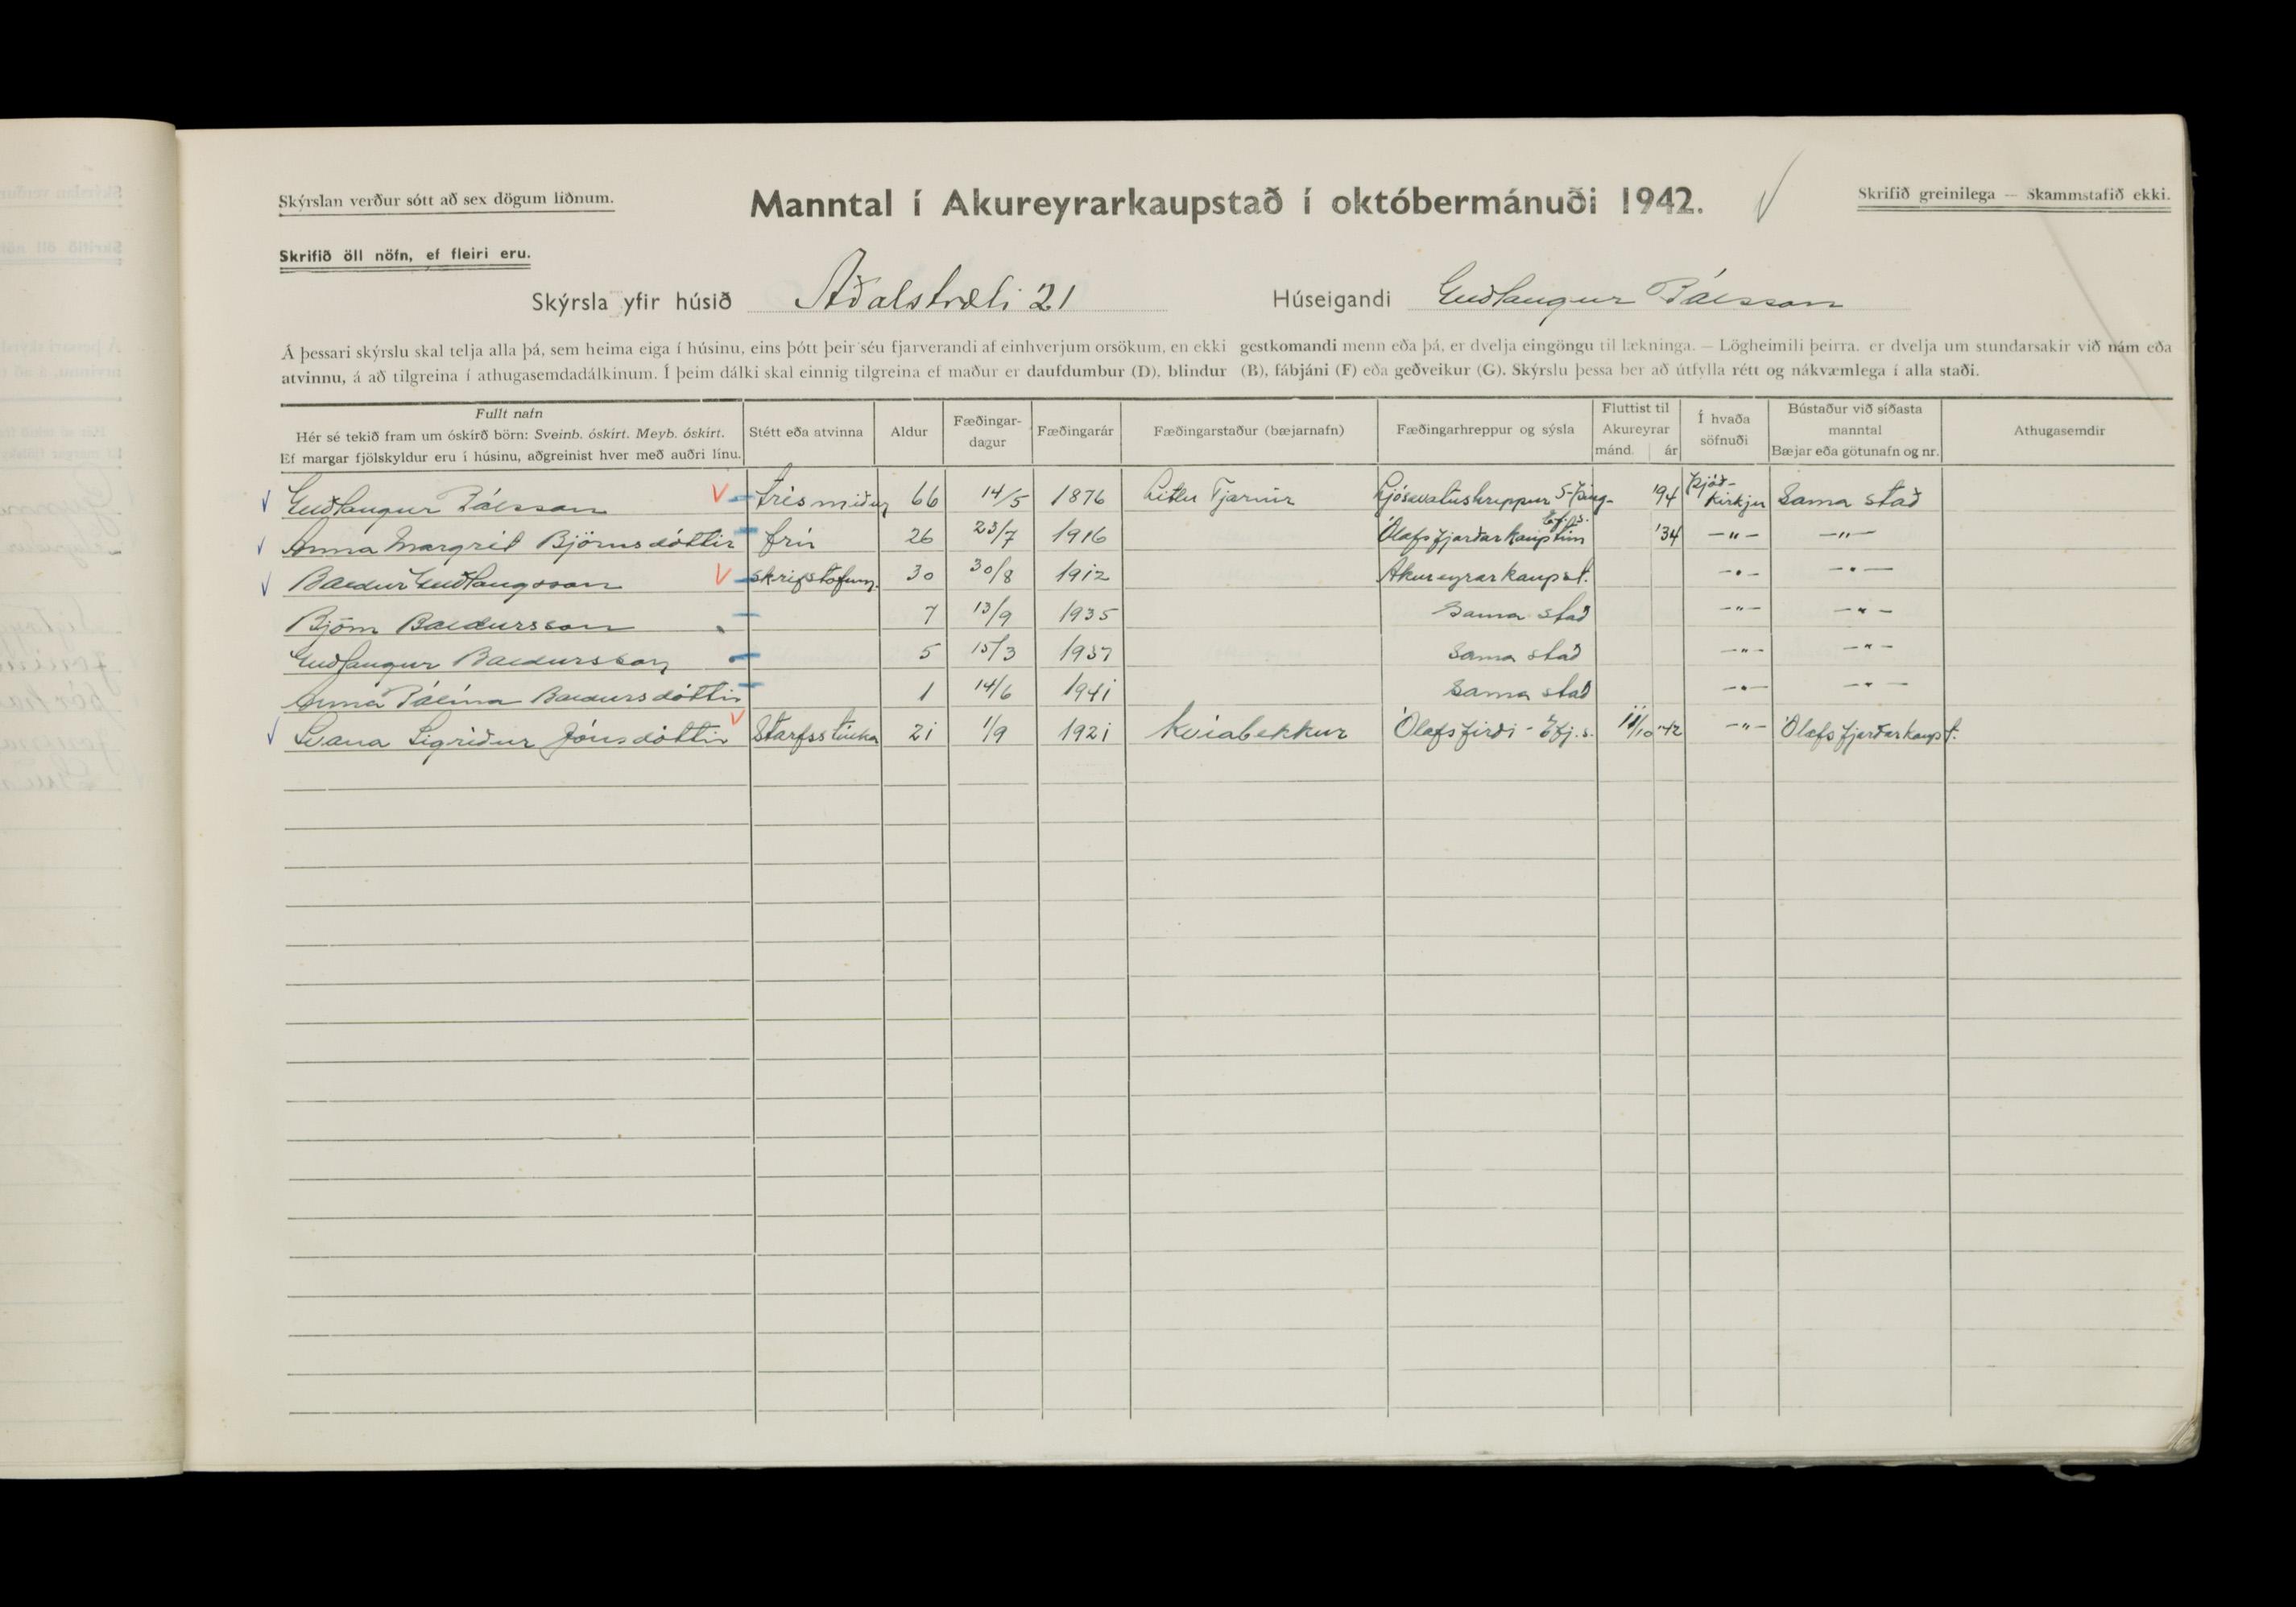 Skýrslan verður sótt að sex dögum liðnum.
Manntal í Akureyrarkaupstað í októbermánuði 1942.
Skrifið greinilega — Skammstafið ekki.
Skrifið öll nöfn, ef fleiri eru.
Skýrsla yfir húsið Aðalstræti 21 Húseigandi Guðlaugur Pálsson
Á þessari skýrslu skal telja alla þá, sem heima eiga í húsinu, eins þótt þeir séu fjarverandi af einhverjum orsökum, en ekki gestkomandi menn eða þá, er dvelja eingöngu til lækninga. — Lögheimili þeirra, er dvelja um stundarsakir við nám eða
atvinnu, á að tilgreina í athugasemdadálkinum. Í þeim dálki skal einnig tilgreina ef maður er daufdumbur (D), blindur (B), fábjáni (F) eða geðveikur (G). Skýrslu þessa ber að útfylla rétt og nákvæmlega í alla staði.
Fullt nafn
Hér sé tekið fram um óskírð börn: Sveinb. óskírt. Meyb. óskírt.
Ef margar fjölskyldur eru í húsinu, aðgreinist hver með auðri línu.
Stétt eða atvinna
Aldur
Fæðingar-
dagur
Fæðingarár
Fæðingarstaður (bæjarnafn)
Fæðingarhreppur og sýsla
Fluttist til
Akureyrar
mánd. ár
Í hvaða
söfnuði
Bústaður við síðasta
manntal
Bæjar eða götunafn og nr.
Athugasemdir
Guðlaugur Pálsson trésmiður 66 14/5 1876 Litlu Tjarnir Ljósavatushreppur S-Þing- '94 Þjóð-kirkju Sama stað
Anna Margrét Björnsdóttir frú 26 23/7 1916 Ólafsfjarðarkauptún Efj.s. '34 -"- -"-
Baldur Guðlaugsson skrifstofum. 30 30/8 1912 Akureyrarkaupst. -"- -"-
Björn Baldursson 7 13/9 1935 Sama stað -"- -"-
Guðlaugur Baldursson 5 15/3 1937 Sama stað -"- -"-
Anna Pálína Baldursdóttir 1 14/6 1941 Sama stað -"- -"-
Svana Sigríður Jónsdóttir Starfsstúlka 21 1/9 1921 Kvíabekkur Ólafsfirði - Efj.s. 11/10 '42 -"- Ólafsfjarðarkaupt.